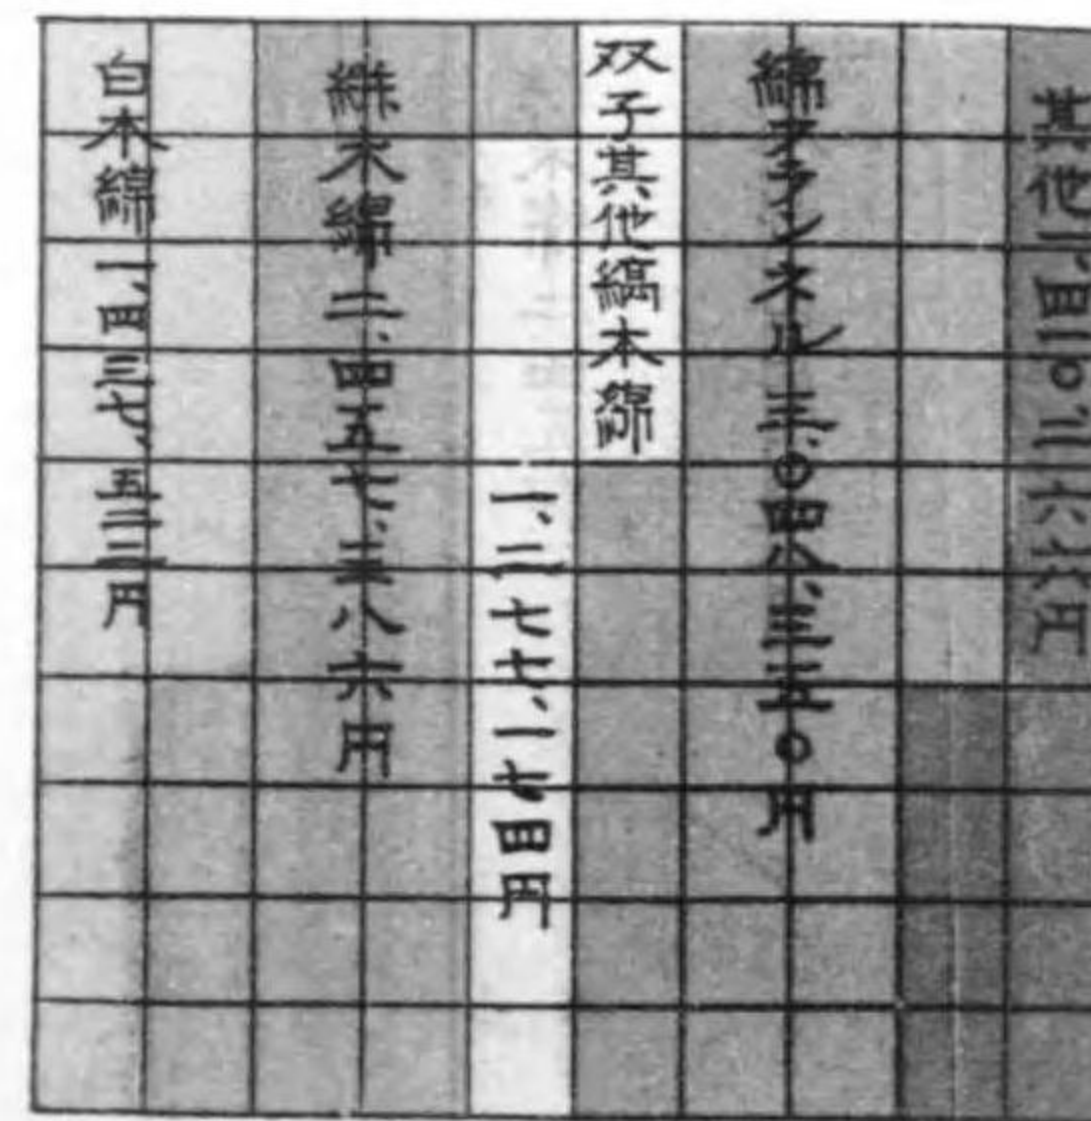 其他一、四二〇、二六六円
綿フランネル三、〇四八、三五〇円
双子其他縞木綿
一、二七七、一七四円
絣木綿二、四五七、三八六円
白木綿一、四三七、五二二円